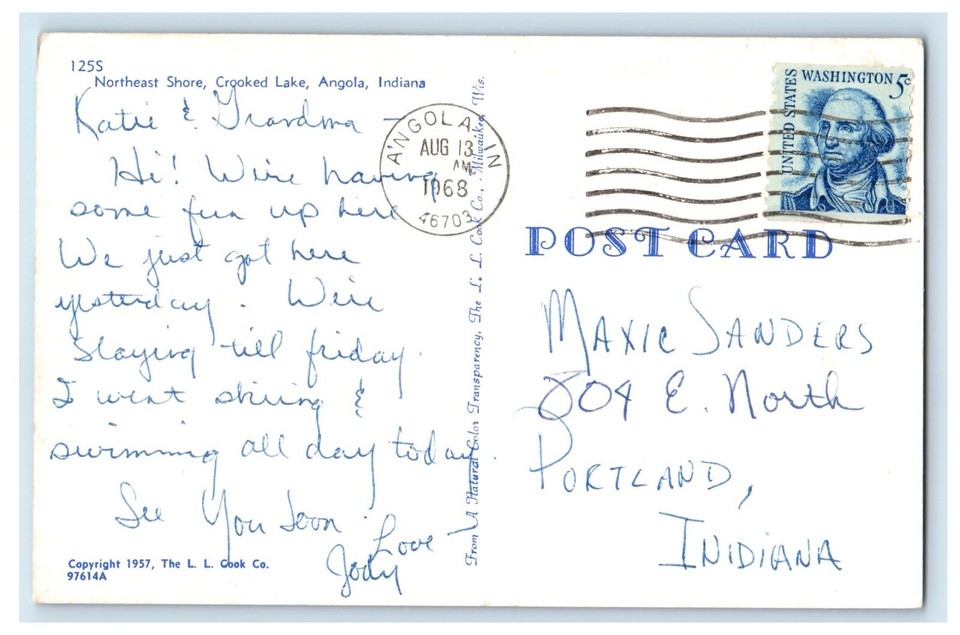 125S
Northeast Shore, Crooked Lake, Angola, Indiana
Katie & Grandma -
Hi! We're having
some fun up here
We just got here
yesterday. We're
staying till friday.
I went skiing &
swimming all day today.
See You Soon.
Love -
Jody
Copyright 1957, The L. L. Cook Co.
97614A
From A Natural Color Transparency, The L. L. Cook Co., Milwaukee, Wis.
ANGOLA, IN
AUG 13
AM
1968
46703
UNITED STATES
WASHINGTON 5¢
POST CARD
MAXIE SANDERS
804 E. North
PORTLAND,
INIDIANA